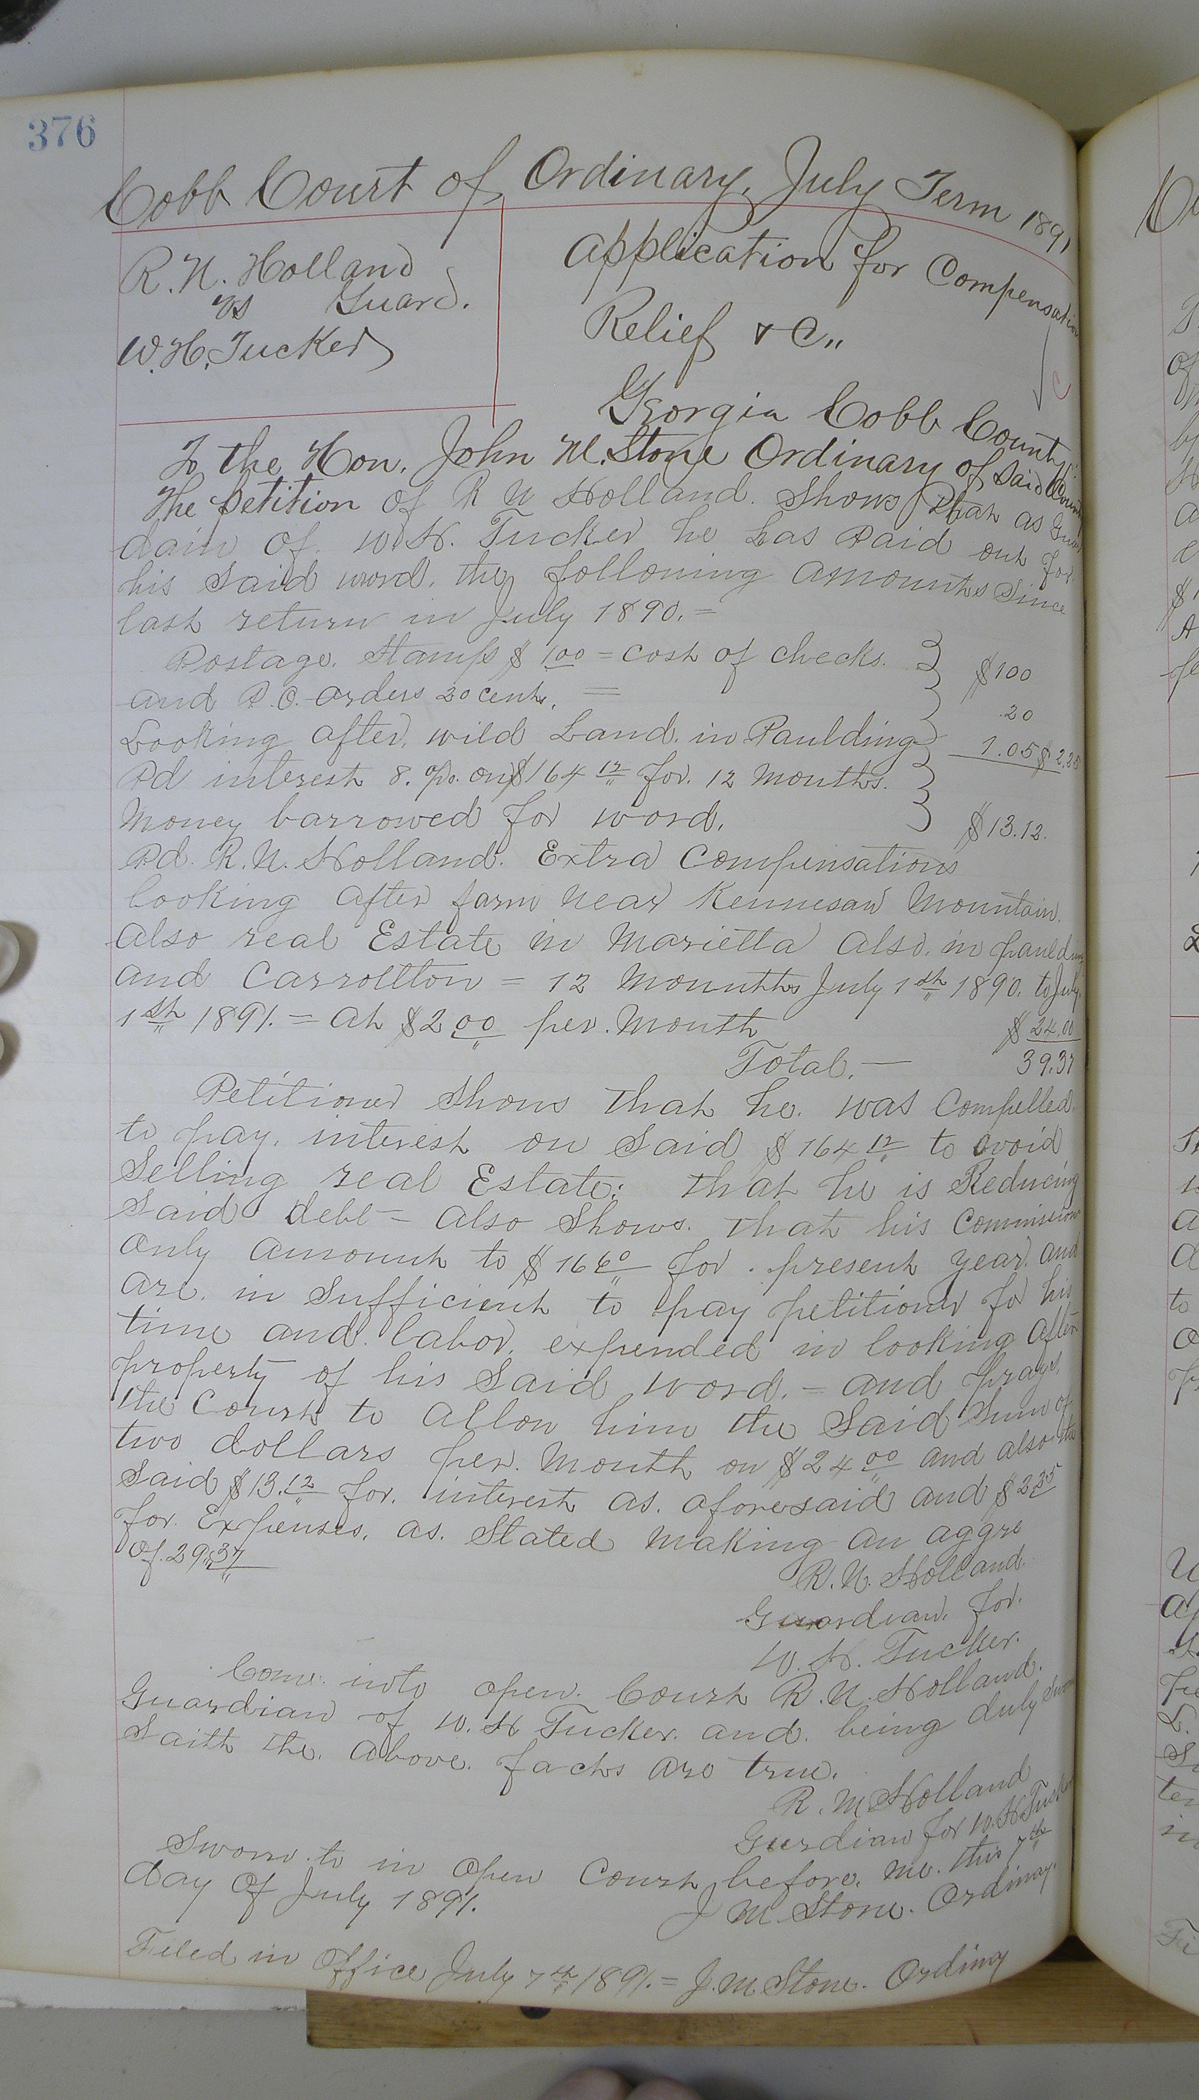 376
Cobb Court of Ordinary, July Term 1891
R. N. Holland
vs Guard.
W. H. Tucker
Application for Compensation
Relief & C,,
Georgia Cobb County,
To the Hon. John M. Stone Ordinary of Said County
The petition of R N Holland. Shows that as Guar
dain of W. H. Tucker he has Paid out for
his Said word. the following amounts Since
last return in July 1890. =
Postage. Stamps $ 1.00 = cost of checks. $100
and P.O. orders 20 cents. = .20
Looking after. wild Land. in Paulding 1.05 $2.25
Pd interest 8. o/o. on $164 12 for. 12 Months.
Money barrowed for word. $13.12.
Pd. R. N. Holland. Extra Compensations
looking after farm near Kennesaw Mountain.
also real Estate in Marietta also. in paulding
and Carrollton = 12 Mounths July 1st 1890. to July
1st 1891. = at $2 00 per. Month $24.00
Total. — 39.37
Petitioner Shows that he. was Compelled
to pay. interest on Said $164 12 to avoid
Selling real Estate; that he is Reducing
Said debt = also Shows. that his Commissions
only amount to $16 60 for. present year. and
are. in Sufficient to pay petitioner for his
time and labor. expended in looking after
property of his Said word. = and prays.
the Court to allow him the Said Sum of
two dollars per. Month or $24 00 and also the
Said $13.12 for. interest as. aforesaid and $2 25
for. Expenses. as. Stated Making an aggre
of. 29.37
R. N. Holland.
Guardian. for.
W. H. Tucker.
Come into open. Court R. N. Holland.
Guardian of W. H Tucker. and. being duly Sworn
Saith the. above. facts are true.
R. M Holland
Gurdian for W. H Tucker
Sworn. to in open Court before. me. this 7th
day of July 1891.
J M Stone. Ordinay.
Filed in Office July 7th 1891. = J. M. Stone. Ordiny